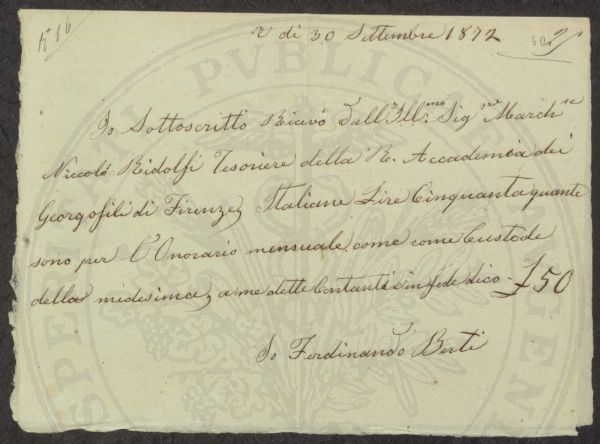 N° 16
A dì 30 Settembre 1872
40
Io Sottoscritto Ricevo Dall'Ill.mo Sig.re March.se
Niccolò Ridolfi Tesoriere della R. Accademia dei
Georgofili di Firenze, Italiane Lire Cinquanta quante
sono per l'Onorario mensuale come come Custode
della midesima, a me dette Contanti in fede dico - £ 50
Io Ferdinando Berti